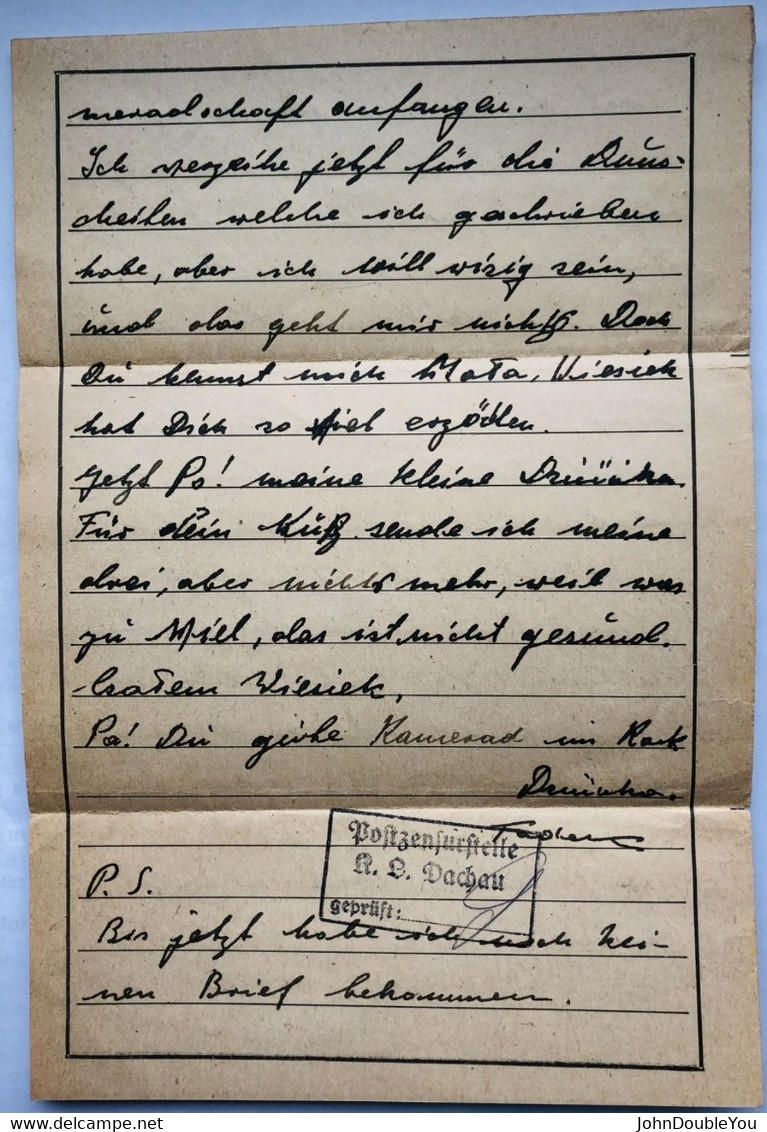 meradschaft anfangen.
Ich verzeihe jetzt für die Dum-
cheiten welche ich geschrieben
habe, aber ich will wizig sein,
und das geht mir nichts. Doch
Du kennst mich Mała, Wiesiek
hat Dich so viel erzählen.
Jetzt Pa! meine kleine
Für dein Kuß sende ich meine
drei, aber nichts mehr, weil was
zu Miel, das ist nicht gesund.
Czołem Wiesiek,
Pa! Du Kamerad im Rock
Postzensurstelle
K. L. Dachau
geprüft:
P. S.
Bis jetzt habe ich noch kei-
nen Brief bekommen.
JohnDoubleYou